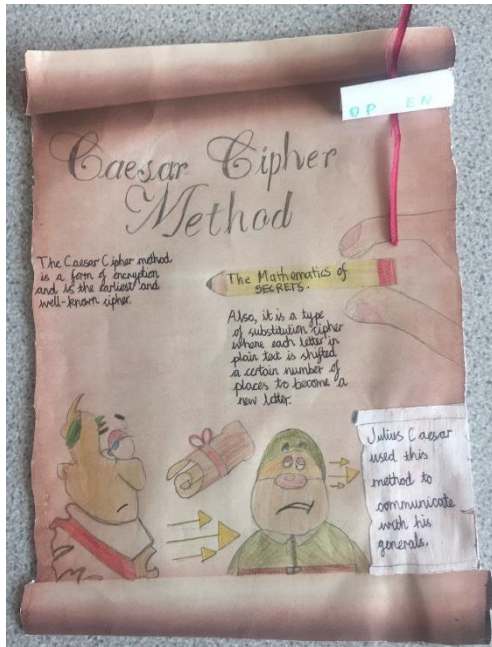 OP EN
Caesar Cipher
Method
The Caesar Cipher method
is a form of encryption
and is the earliest and
well-known cipher.
The Mathematics of
SECRETS.
Also, it is a type
of substitution cipher
where each letter in
plain text is shifted
a certain number of
places to become a
new letter.
Julius Caesar
used this
method to
communicate
with his
generals.